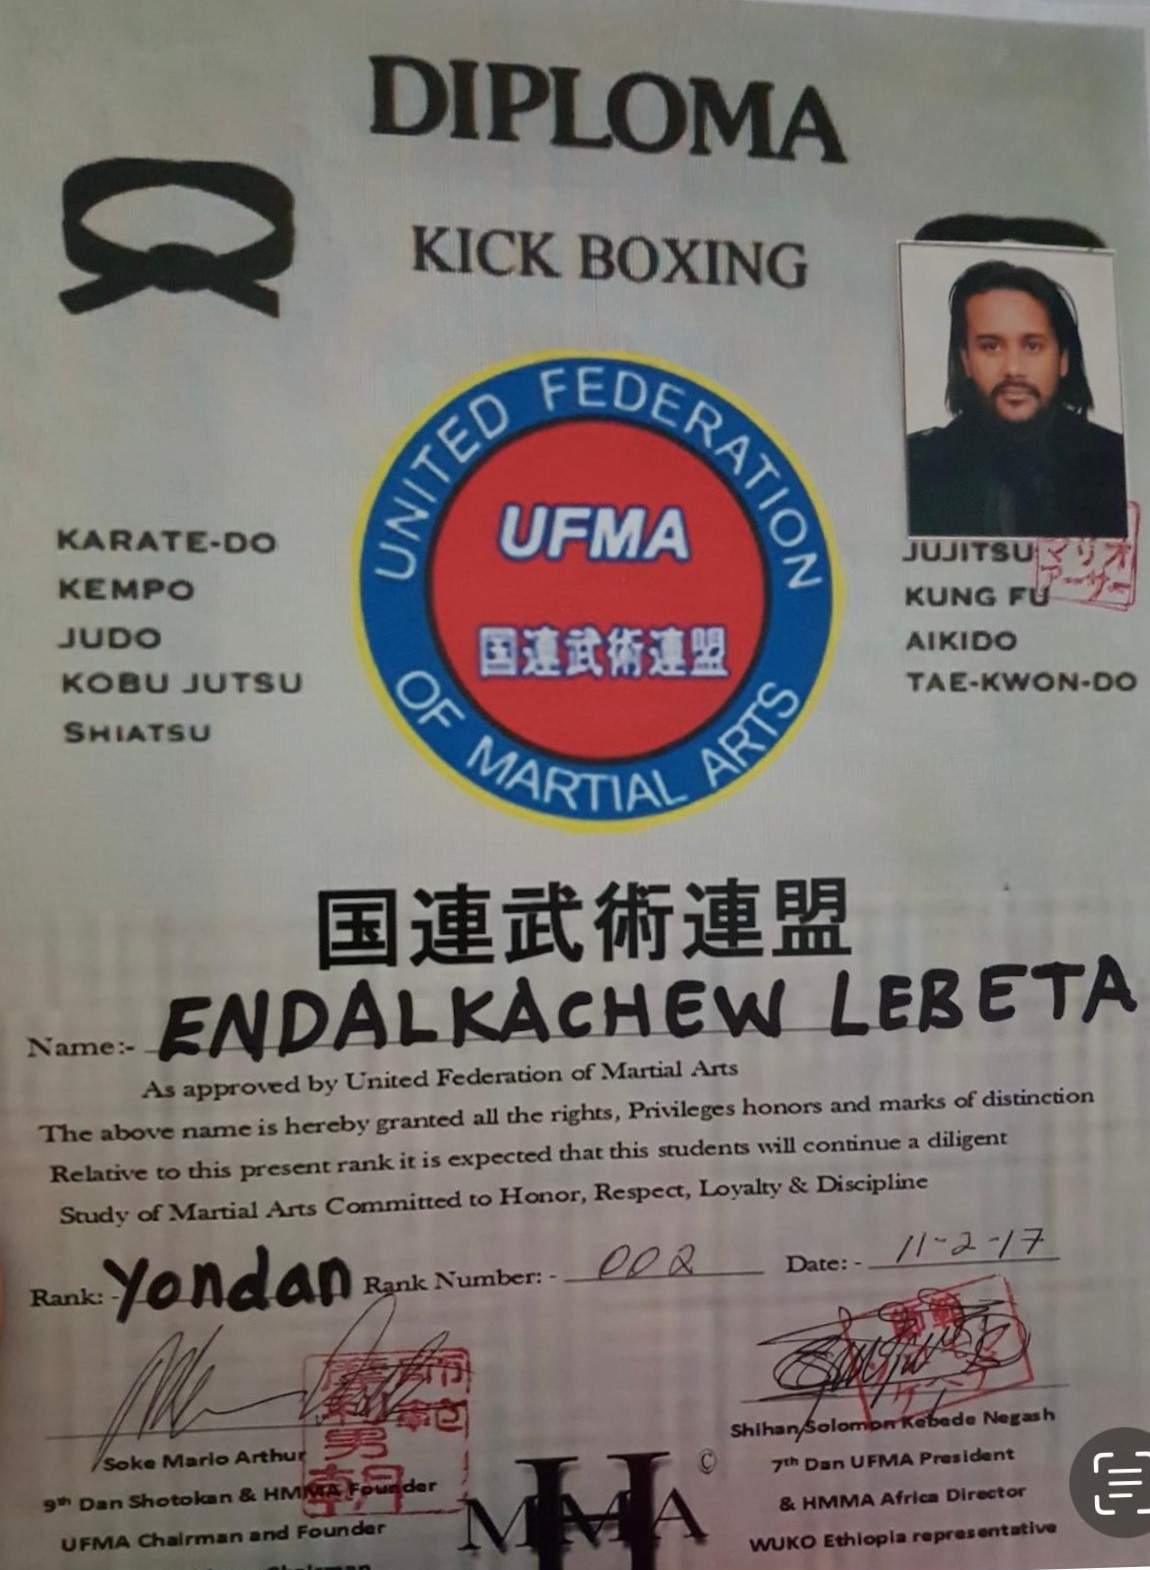 DIPLOMA
KICK BOXING
UNITED FEDERATION
OF MARTIAL ARTS
UFMA
国連武術連盟
KARATE-DO
KEMPO
JUDO
KOBU JUTSU
SHIATSU
JUJITSU
KUNG FU
AIKIDO
TAE-KWON-DO
マリオ
アーサー
国連武術連盟
Name:- ENDALKACHEW LEBETA
As approved by United Federation of Martial Arts
The above name is hereby granted all the rights, Privileges honors and marks of distinction
Relative to this present rank it is expected that this students will continue a diligent
Study of Martial Arts Committed to Honor, Respect, Loyalty & Discipline
Rank: - Yondan Rank Number: - 002 Date: - 11-2-17
Soke Mario Arthur
9th Dan Shotokan & HMMA Founder
UFMA Chairman and Founder
Chairman
HMMA ©
Shihan Solomon Kebede Negash
7th Dan UFMA President
& HMMA Africa Director
WUKO Ethiopia representative